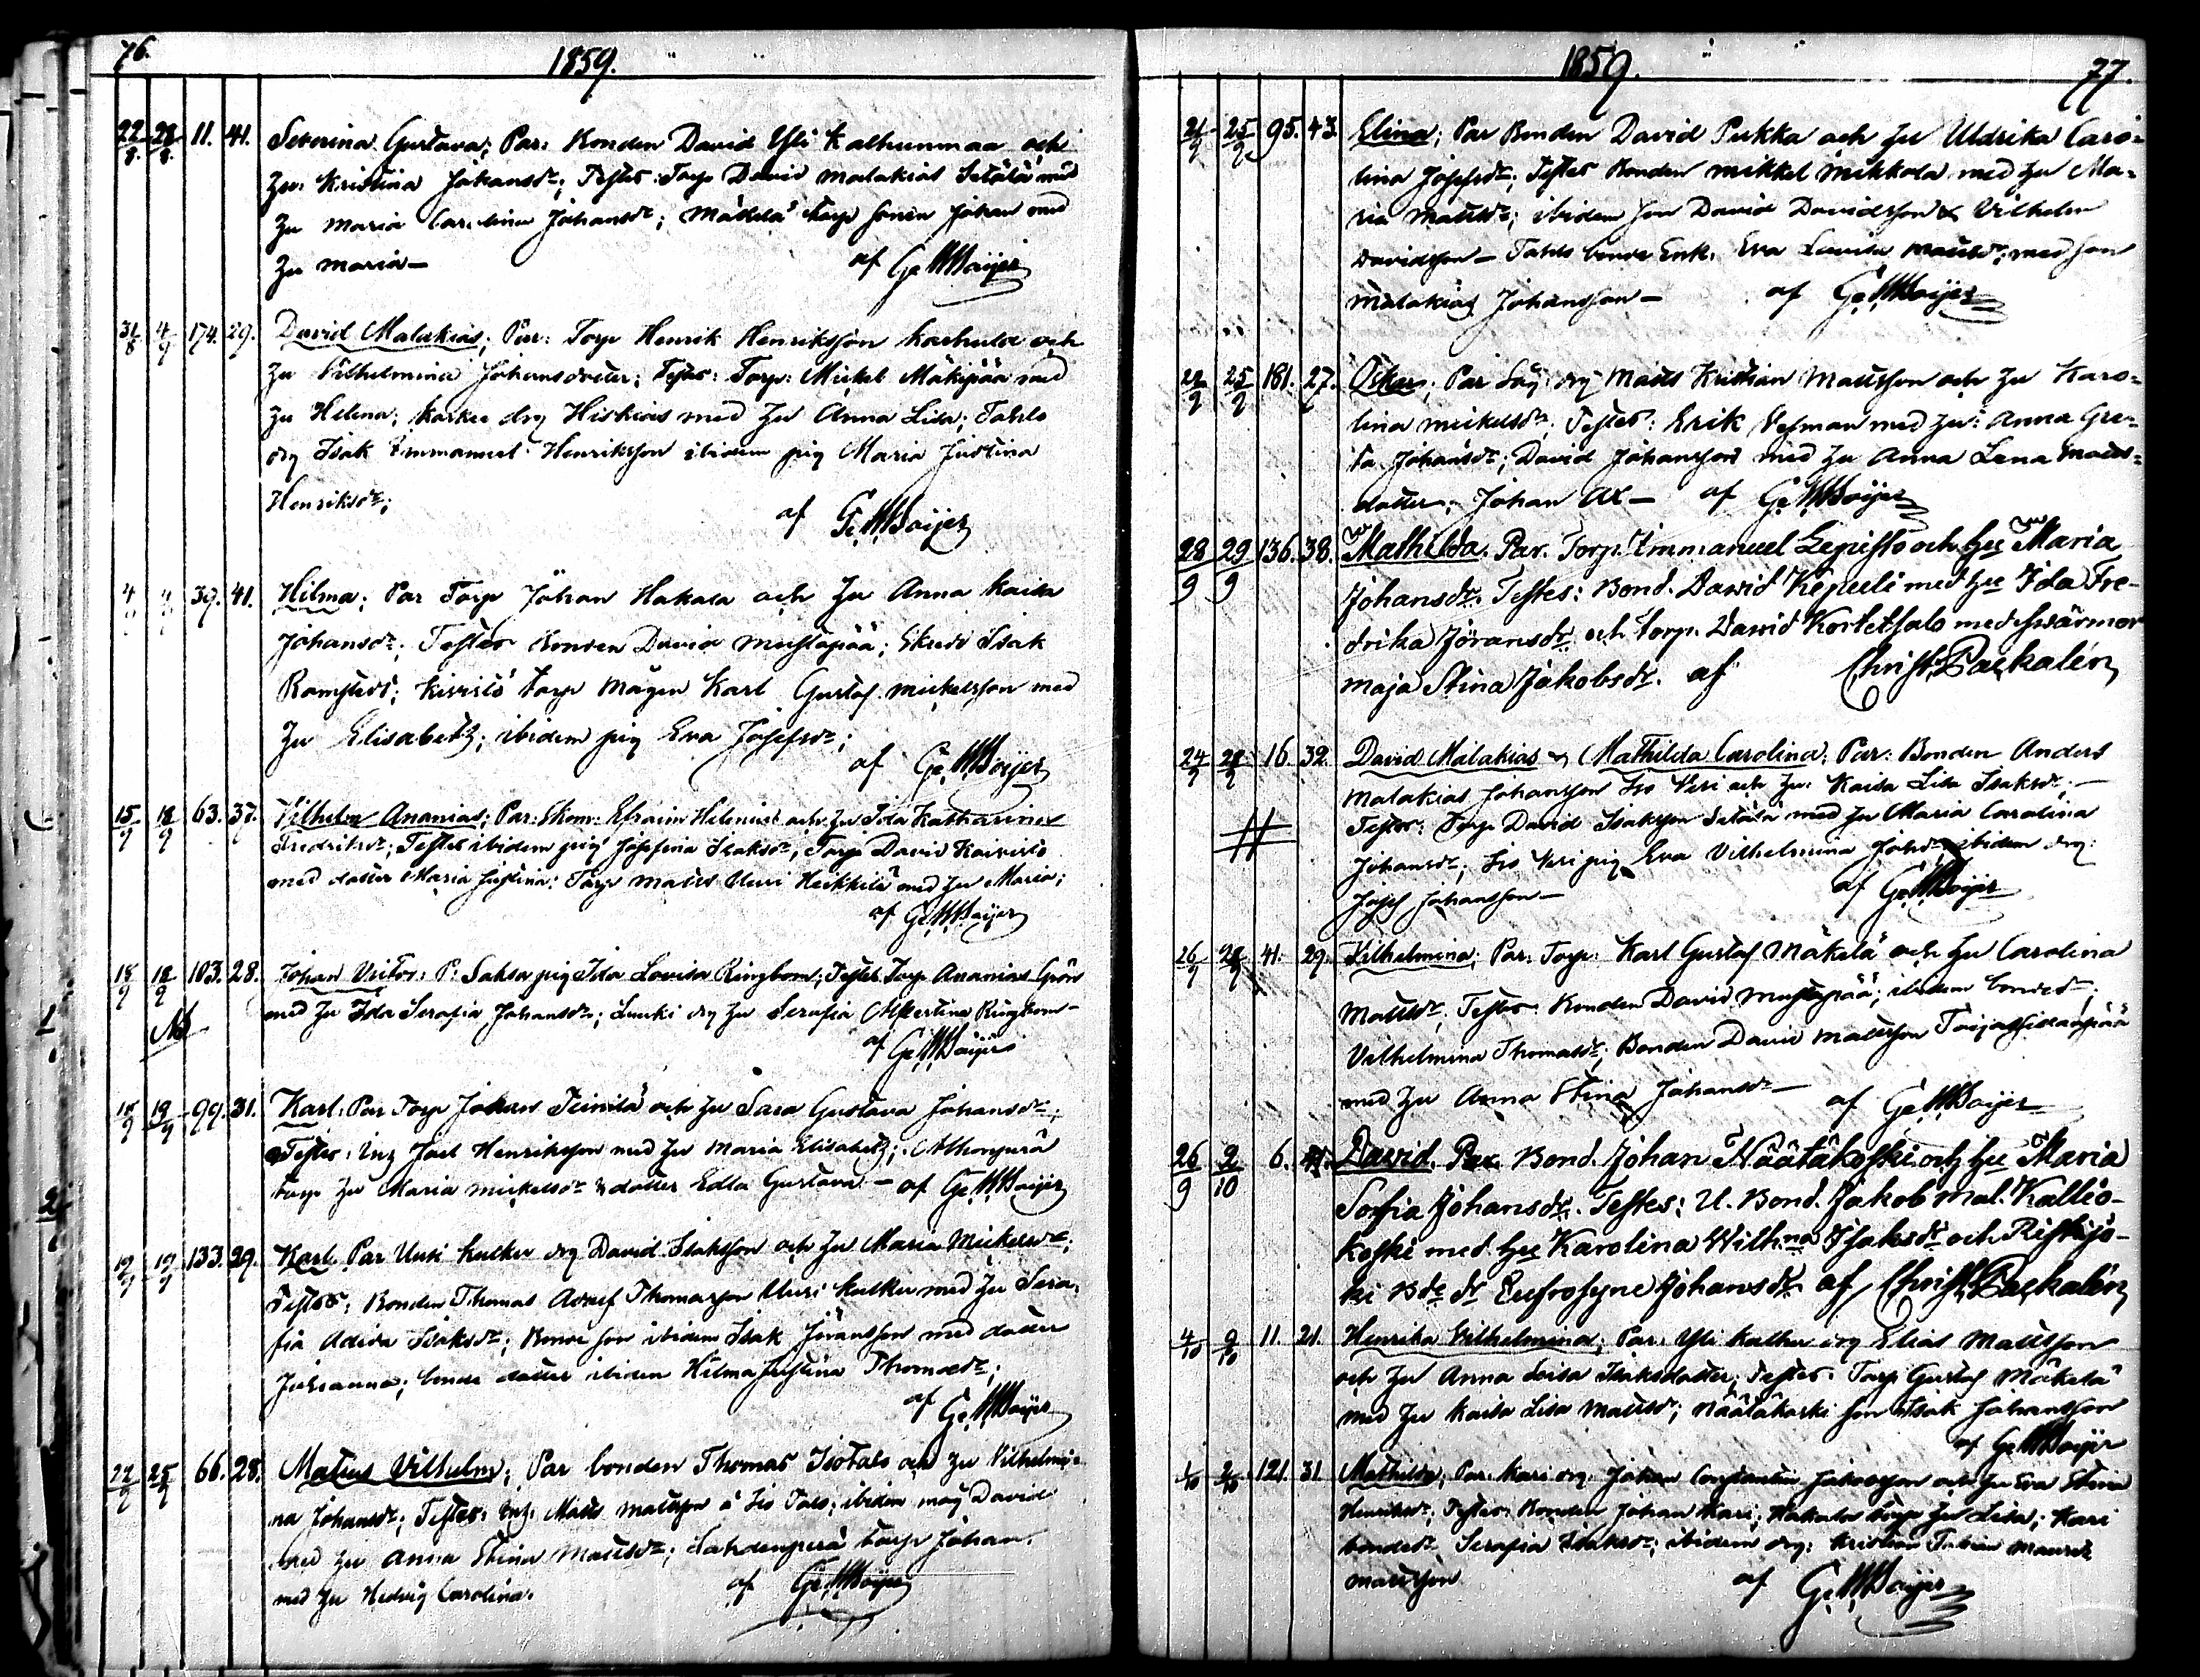 76.
1859.
22/8. 28/8. 11. 41. Severina Gustava; Par: Bonden David Yli Kalhunmaa och
hu: Kristina Johansdr; Testes: Torp David Malakias Setälä med
hu Maria Carolina Johansdr; Mäkelä torp sonen Johan med
hu Maria — af G. W. Boijer
31/8 4/9 174. 29. David Malakias; Par: Torp Henrik Henriksson Karhula och
hu Vilhelmina Johansdotter; Testes: Torp: Mickel Mäkipää med
hu Helena; Karkee drg Hiskias med hu Anna Lisa; Tahlo
drg Isak Immanuel Henriksson ibidem pig Maria Justina
Henriksdr; af G. W. Boijer
4 4 39. 41. Hilma; Par Torp Johan Hakala och hu Anna Kaisa
Johansdr; Testes Bonden David Mustapää; Isak
Ramstedt; Kivistö torp mågen Karl Gustaf Mickelsson med
hu Elisabeth; ibidem pig Eva Josefsdr;
af G. W. Boijer
15/9 18/9 63. 37. Vilhelm Ananias; Par: Skom: Efraim Helenius och hu Ida Katharina
Fredriksdr; Testes ibidem pig Josefina Isaksdr; Torp David Koivisto
med dotter Maria Justina; Torp Matts Uusi Heikkilä med hu Maria;
af G. W. Boijer
18/9 18/9 103. 28. Johan Victor; P: Saksa pig Ida Lovisa Ringbom; Testes Torp Ananias
med hu Ida Serafia Johansdr; drg hu Serafia Albertina Ringbom —
af G. W. Boijer
18/9 19/9 99. 31. Karl; Par Torp Johan och hu Sara Gustava Johansdr;
Testes: Inh Joel Henriksson med hu Maria Elisabeth;
torp hu Maria Mickelsdr & dotter Edla Gustava — af G. W. Boijer
19/9 19/9 133. 29. Karl Par Uusi Kulku drg David Isaksson och hu Maria Mickelsdr;
Testes; Bonden Thomas Adolf Thomasson Uusi Kulku med hu Sera-
fia Adiva Isaksdr; Bonde son ibidem Isak Jöransson med dotter
Johanna; bonde dotter ibidem Hilma Justina Thomasdr;
af G. W. Boijer
22/9 25/9 66. 28. Matts Vilhelm; Par bonden Thomas Isotalo och hu Vilhelmi-
na Johansdr; Testes: Inh. Matts Mattsson å Iso Talo; ibidem måg David
med hu Anna Stina Mattsdr; Lahdenperä torp Johan
med hu Hedvig Carolina. af G. W. Boijer
1859.
77.
21/9 25/9 95. 43. Elina; Par Bonden David Pukka och hu Uldrika Caro-
lina Josefsdr; Testes Bonden Mikkel Mikkola med hu Ma-
ria Mattsdr; ibidem son David Davidsson & Vilhelm
Davidsson — Tahlo bonde Enk. Eva Lovisa Mattsdr; med son
Malakias Johansson — af G. W. Boijer
22/9 25/9 181. 27. Oskar; Par Säg drg Matts Kristian Mattsson och hu Karo-
lina Mickelsdr; Testes: Erik Vesman med hu: Anna Gre-
ta Johansdr; David Johansson med hu Anna Lena Matts-
dotter; Johan Ax — af G. W. Boijer
28/9 29/9 136. 38. Mathilda. Par. Torp. Immanuel Lepistö och hu Maria
Johansdr. Testes: Bond. David Kepuli med hu Ida Fre-
drika Jöransdr och torp. David Kortetsalo med swärmor
Maja Stina Jakobsdr. af Christ. Paskalén
24/9 28/9 16. 32. David Malakias & Mathilda Carolina; Par: Bonden Anders
Malakias Johansson Iso Vesi och hu Kaisa Lisa Isaksdr; —
Testes: Torp David Isaksson Setälä med hu Maria Carolina
Johansdr; Iso Vesi pig Eva Vilhelmina Johsdr ibidem drg:
Josef Johansson — af G. W. Boijer
26/9 28/9 41. 29. Vilhelmina; Par: Torp: Karl Gustaf Mäkelä och hu Carolina
Mattsdr; Testes: Bonden David Mustapää; ibidem bondedr;
Vilhelmina Thomasdr; Bonden David Mattsson
med hu Anna Stina Johansdr — af G. W. Boijer
26/9 2/10 6. David. Par. Bond. Johan Näätäkoski och hu Maria
Sofia Johansdr. Testes: U. Bond. Jakob Mal. Kallio-
koski med hu Karolina Wilhna Isaksdr och Ristijo-
ki Bde dr Eufrosyne Johansdr. af Christ. Paskalén
4/10 9/10 11. 21. Henrika Vilhelmina; Par: Yli Kulku drg Elias Mattsson
och hu Anna Lovisa Isaksdotter; Testes: Torp Gustaf Mäkelä
med hu Kaisa Lisa Mattsdr; Näätäkoski son Isak Johansson
af G. W. Boijer
1/10 2/10 121. 31. Mathilda; Par. Kari drg. Johan Constantin Jakobsson och hu Eva Stina
Henriksdr; Testes: Bonden Johan Kari; Hakala torp hu Lisa; Kari
bondedr Serafia Isaksdr; ibidem drg: Kristian Tobias Maurits
Mattsson af G. W. Boijer